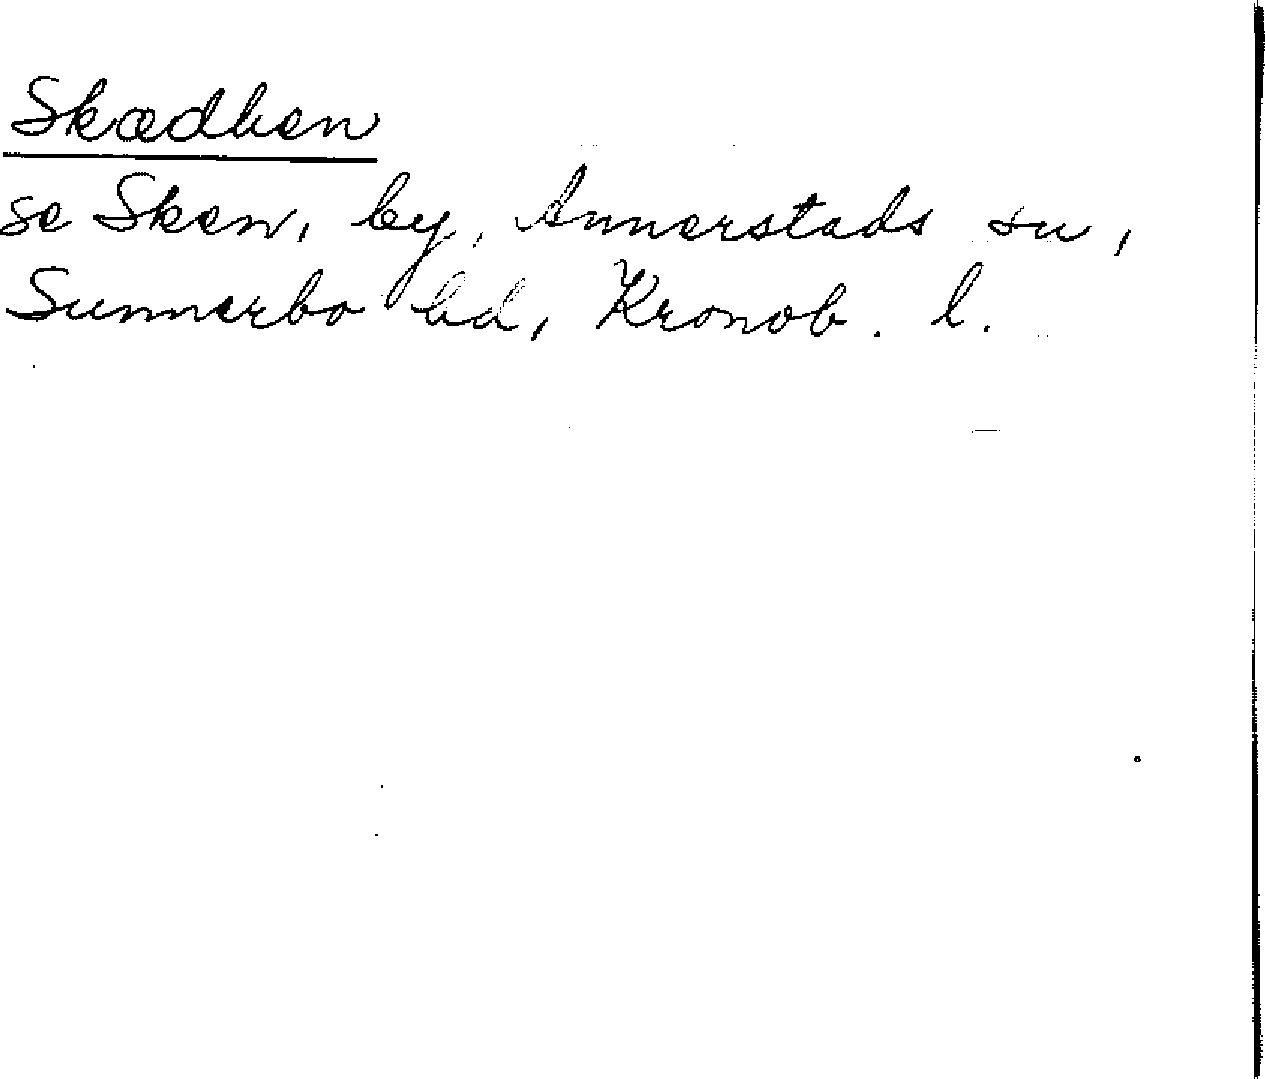 Skædhen
se Sken, by, Annerstads sn,
Sunnerbo hd, Kronob. l.